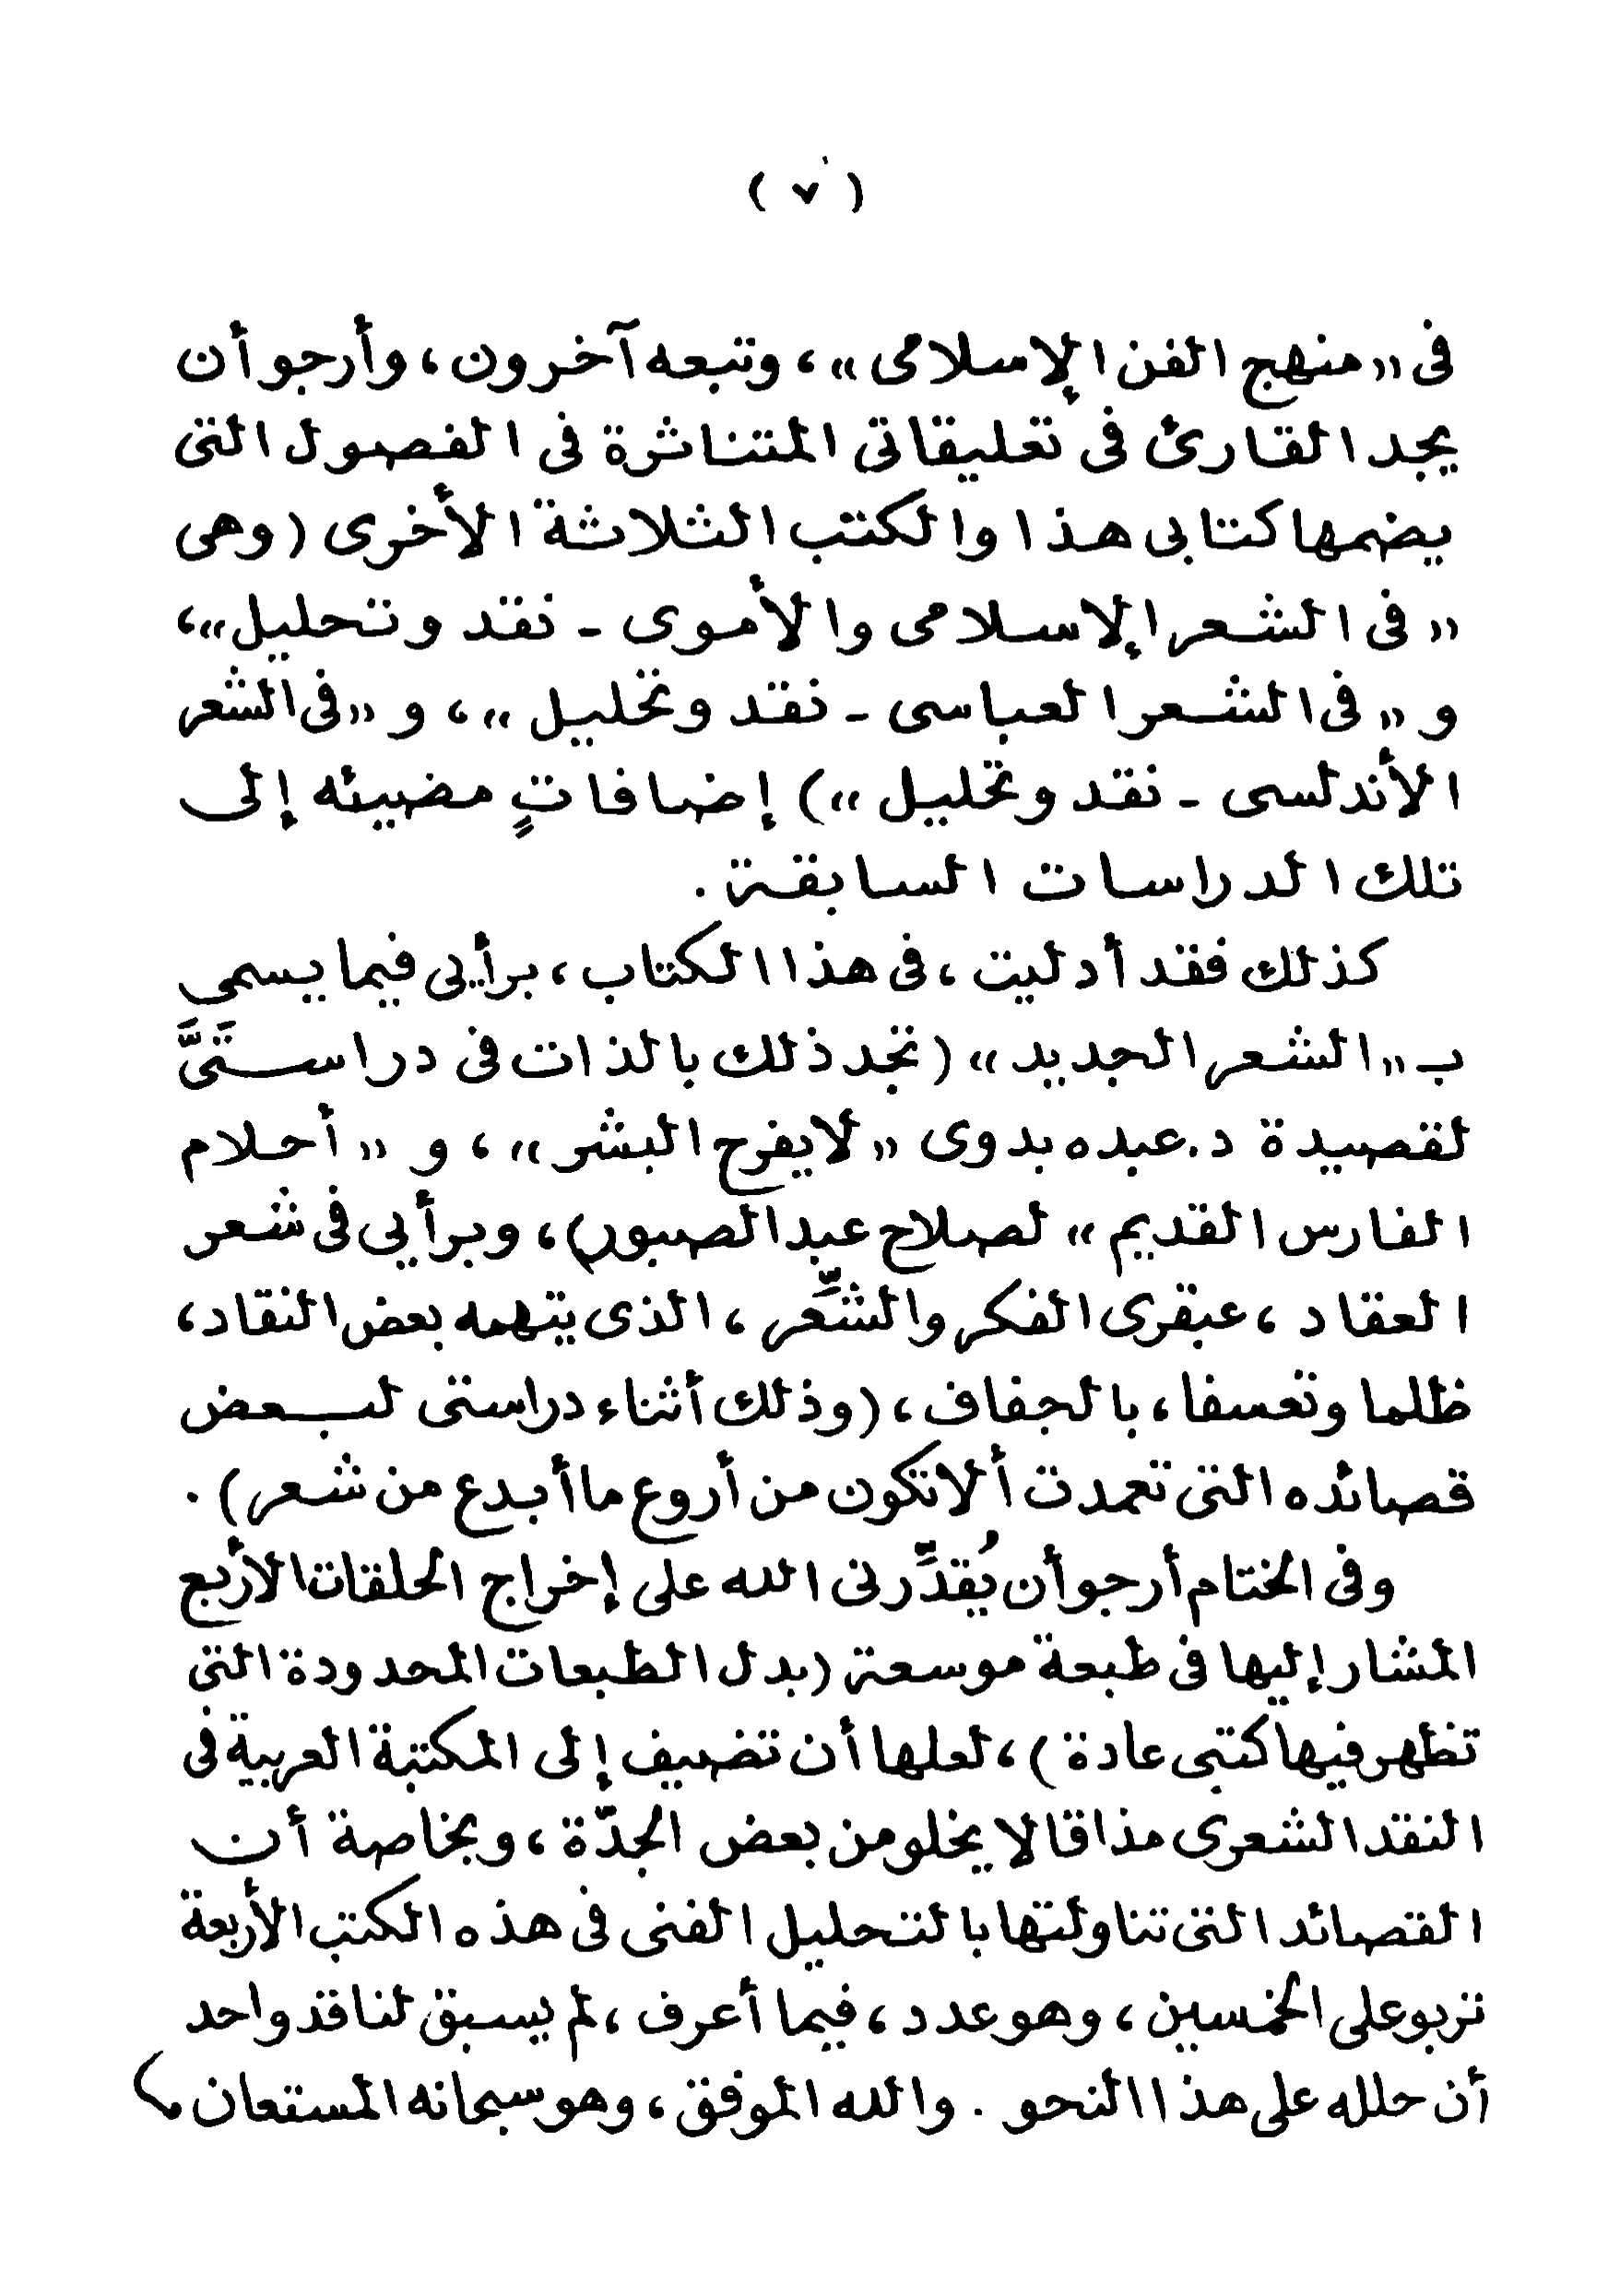 ( ٧ )
فى «منهج الفن الإسلامى» ، وتبعه آخرون ، وأرجو أن
يجد القارئ فى تعليقاتى المتناثرة فى الفصول التى
يضمها كتابى هذا والكتب الثلاثة الأخرى (وهى
«فى الشعر الإسلامى والأموى - نقد وتحليل» ،
و «فى الشعر العباسى - نقد وتحليل» ، و «فى الشعر
الأندلسى - نقد وتحليل») إضافاتٍ مضيئه إلى
تلك الدراسات السابقة .
كذلك فقد أدليت ، فى هذا الكتاب ، برأيى فيما يسمى
بـ «الشعر الجديد» (تجد ذلك بالذات فى دراستَىَّ
لقصيدة د. عبده بدوى «لا يفرح البشر» ، و «أحلام
الفارس القديم» لصلاح عبد الصبور) ، وبرأيى فى شعر
العقاد ، عبقرى الفكر والشِّعر ، الذى يتهمه بعض النقاد ،
ظلما وتعسفا ، بالجفاف ، (وذلك أثناء دراستى لبعض
قصائده التى تعمدت ألا تكون من أروع ما أبدع من شعر) .
وفى الختام أرجو أن يُقدِّرنى الله على إخراج الحلقات الأربع
المشار إليها فى طبعة موسعة (بدل الطبعات المحدودة التى
تظهر فيها كتبى عادة) ، لعلها أن تضيف إلى المكتبة العربية فى
النقد الشعرى مذاقا لا يخلو من بعض الجدّة ، وبخاصة أن
القصائد التى تناولتها بالتحليل الفنى فى هذه الكتب الأربعة
تربو على الخمسين ، وهو عدد ، فيما أعرف ، لم يسبق لناقد واحد
أن حلله على هذا النحو . والله الموفق ، وهو سبحانه المستعان